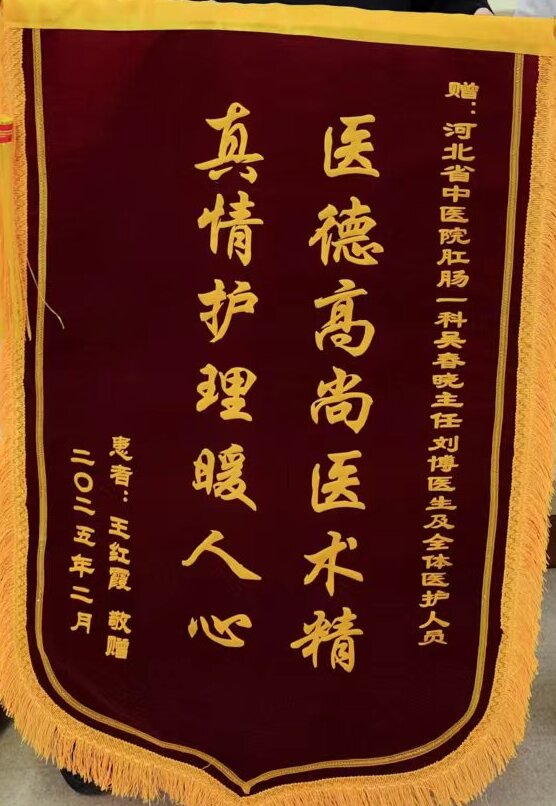 赠：河北省中医院肛肠一科吴春晓主任刘博医生及全体医护人员
医德高尚医术精
真情护理暖人心
患者：王红霞 敬赠
二〇二五年二月